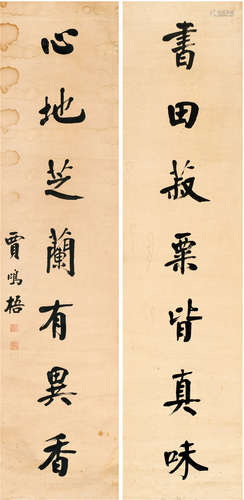 書田菽粟皆真味
心地芝蘭有異香
賈鳴梧